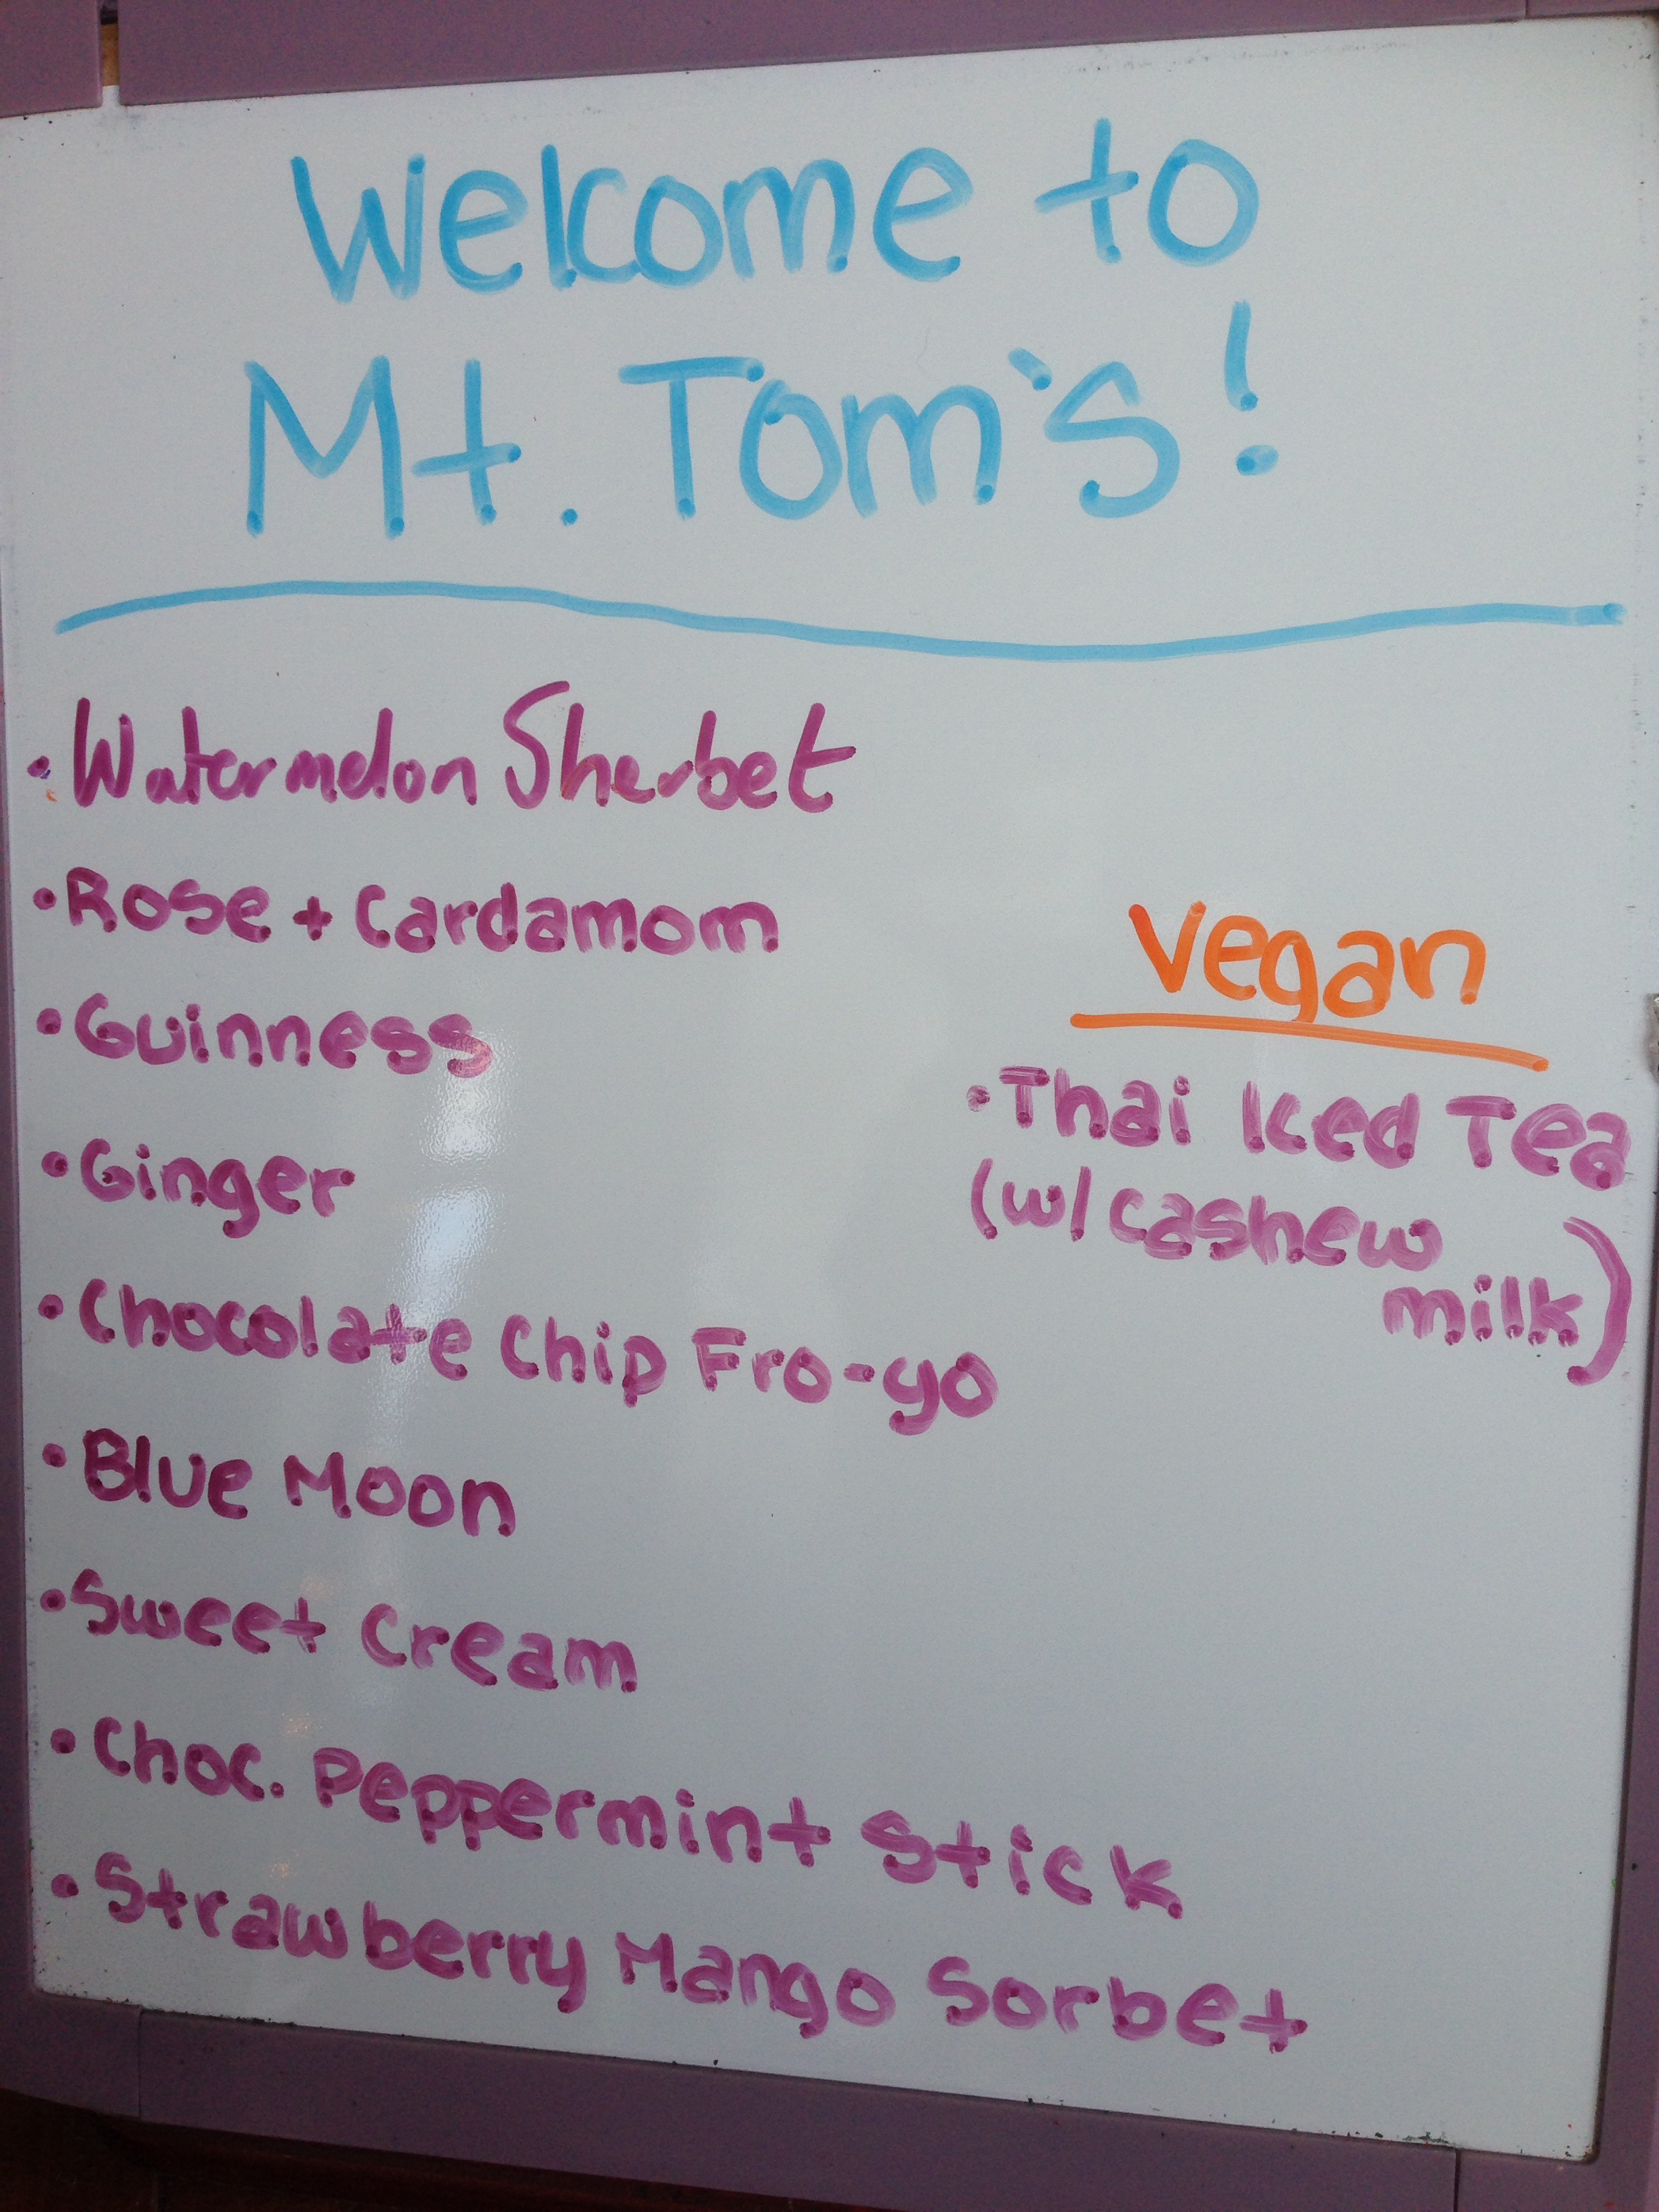 Welcome to
Mt. Tom's!
• Watermelon Sherbet
• Rose + Cardamom
• Guinness
• Ginger
• Chocolate Chip Fro-yo
• Blue Moon
• Sweet Cream
• Choc. Peppermint Stick
• Strawberry Mango Sorbet
Vegan
• Thai Iced Tea
(w/ cashew
milk)